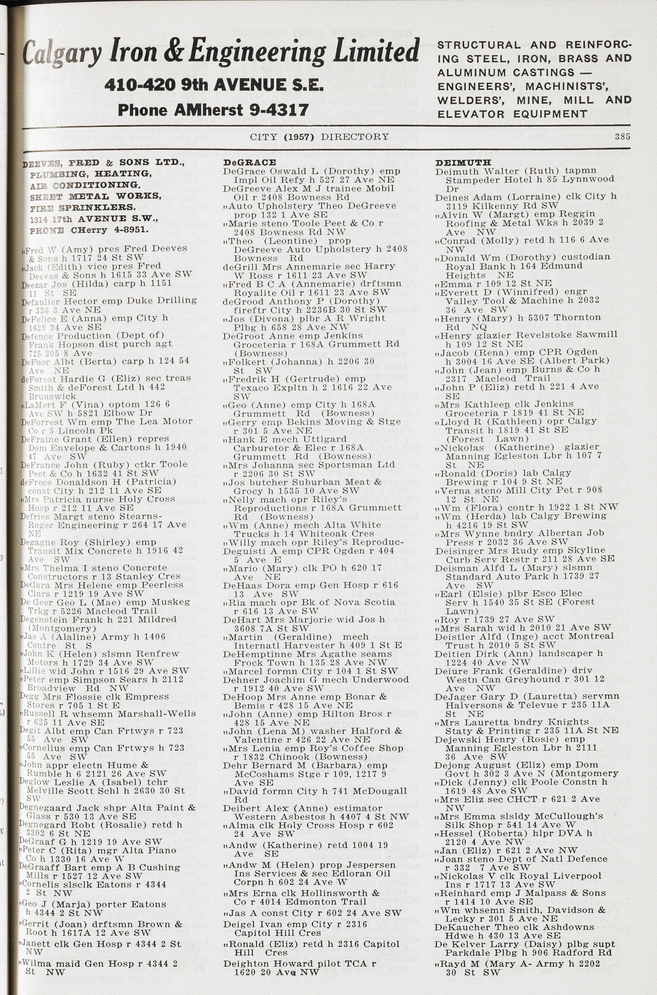 Calgary Iron & Engineering Limited
410-420 9th AVENUE S.E.
Phone AMherst 9-4317
STRUCTURAL AND REINFORC-
ING STEEL, IRON, BRASS AND
ALUMINUM CASTINGS —
ENGINEERS', MACHINISTS',
WELDERS', MINE, MILL AND
ELEVATOR EQUIPMENT
CITY (1957) DIRECTORY 385
DEEVES, FRED & SONS LTD.,
PLUMBING, HEATING,
AIR CONDITIONING,
SHEET METAL WORKS,
FIRE SPRINKLERS.
1314 17th AVENUE S.W.,
PHONE CHerry 4-8951.
"Fred W (Amy) pres Fred Deeves
& Sons h 1717 24 St SW
"Jack (Edith) vice pres Fred
Deeves & Sons h 1615 33 Ave SW
Deezar Jos (Hilda) carp h 1151
11 St SE
Defaulter Hector emp Duke Drilling
r 336 3 Ave NE
DeFelice E (Anna) emp City h
1628 24 Ave SE
Defence Production (Dept of)
Frank Hopson dist purch agt
725 205 8 Ave
DeFoor Albt (Berta) carp h 124 54
Ave NE
deForest Hardie G (Eliz) sec treas
Smith & deForest Ltd h 442
Brunswick
"LaMert F (Vina) optom 126 6
Ave SW h 5821 Elbow Dr
DeForrest Wm emp The Lea Motor
Co r 5 Lincoln Pk
DeFraine Grant (Ellen) repres
Dom Envelope & Cartons h 1940
47 Ave SW
DeFrance John (Ruby) ctkr Toole
Peet & Co h 1632 41 St SW
deFrece Donaldson H (Patricia)
const City h 212 11 Ave SE
"Mrs Patricia nurse Holy Cross
Hosp r 212 11 Ave SE
Defries Margt steno Stearns-
Roger Engineering r 264 17 Ave
NE
Degagne Roy (Shirley) emp
Transit Mix Concrete h 1916 42
Ave SW
"Mrs Thelma I steno Concrete
Constructors r 13 Stanley Cres
DeGara Mrs Helene emp Peerless
Clnrs r 1219 19 Ave SW
De Geer Geo L (Mae) emp Muskeg
Trkg r 5226 Macleod Trail
Degenstein Frank h 221 Mildred
(Montgomery)
"Jas A (Alaline) Army h 1406
Centre St S
"John K (Helen) slsmn Renfrew
Motors h 1729 34 Ave SW
"Lillie wid John r 1516 29 Ave SW
"Peter emp Simpson Sears h 2112
Broadview Rd NW
Degg Mrs Flossie clk Empress
Stores r 705 1 St E
"Russell R whsemn Marshall-Wells
r 625 11 Ave SE
Degit Albt emp Can Frtwys r 723
55 Ave SW
"Cornelius emp Can Frtwys h 723
55 Ave SW
"John appr electn Hume &
Rumble h 6 2121 26 Ave SW
Deglow Leslie A (Isabel) tchr
Melville Scott Schl h 2630 30 St
SW
Degnegaard Jack shpr Alta Paint &
Glass r 530 13 Ave SE
Degnegard Robt (Rosalie) retd h
3302 6 St NE
DeGraaf G h 1219 19 Ave SW
"Peter C (Rita) mgr Alta Piano
Co h 1330 16 Ave W
DeGraaff Bart emp A B Cushing
Mills r 1527 12 Ave SW
"Cornelis slsclk Eatons r 4344
2 St NW
"Geo J (Marja) porter Eatons
h 4344 2 St NW
"Gerrit (Joan) drftsmn Brown &
Root h 1617A 12 Ave SW
"Janett clk Gen Hosp r 4344 2 St
NW
"Wilma maid Gen Hosp r 4344 2
St NW
DeGRACE
DeGrace Oswald L (Dorothy) emp
Impl Oil Refy h 527 27 Ave NE
DeGreeve Alex M J trainee Mobil
Oil r 2408 Bowness Rd
"Auto Upholstery Theo DeGreeve
prop 132 1 Ave SE
"Marie steno Toole Peet & Co r
2408 Bowness Rd NW
"Theo (Leontine) prop
DeGreeve Auto Upholstery h 2408
Bowness Rd
deGrill Mrs Annemarie sec Harry
W Ross r 1611 23 Ave SW
"Fred B C A (Annemarie) drftsmn
Royalite Oil r 1611 23 Ave SW
deGrood Anthony P (Dorothy)
fireftr City h 2236B 30 St SW
"Jos (Divona) plbr A R Wright
Plbg h 658 28 Ave NW
DeGroot Anne emp Jenkins
Groceteria r 168A Grummett Rd
(Bowness)
"Folkert (Johanna) h 2206 30
St SW
"Fredrik H (Gertrude) emp
Texaco Expltn h 2 1616 22 Ave
SW
"Geo (Anne) emp City h 168A
Grummett Rd (Bowness)
"Gerry emp Bekins Moving & Stge
r 301 5 Ave NE
"Hank E mech Uttigard
Carburetor & Elec r 168A
Grummett Rd (Bowness)
"Mrs Johanna sec Sportsman Ltd
r 2206 30 St SW
"Jos butcher Suburban Meat &
Grocy h 1535 10 Ave SW
"Nelly mach opr Riley's
Reproductions r 168A Grummett
Rd (Bowness)
"Wm (Anne) mech Alta White
Trucks h 14 Whiteoak Cres
"Willy mach opr Riley's Reproduc-
Deguisti A emp CPR Ogden r 404
5 Ave E
"Mario (Mary) clk PO h 620 17
Ave NE
DeHaas Dora emp Gen Hosp r 616
13 Ave SW
"Ria mach opr Bk of Nova Scotia
r 616 13 Ave SW
DeHart Mrs Marjorie wid Jos h
3608 7A St SW
"Martin (Geraldine) mech
Internatl Harvester h 409 1 St E
DeHemptinne Mrs Agathe seams
Frock Town h 135 28 Ave NW
"Marcel formn City r 104 1 St SW
Dehner Joachim G mech Underwood
r 1912 40 Ave SW
DeHoop Mrs Anne emp Bonar &
Bemis r 428 15 Ave NE
"John (Anne) emp Hilton Bros r
428 15 Ave NE
"John (Lena M) washer Halford &
Valentine r 426 22 Ave NE
"Mrs Lenia emp Roy's Coffee Shop
r 1832 Chinook (Bowness)
Dehr Bernard M (Barbara) emp
McCoshams Stge r 109, 1217 9
Ave SE
"David formn City h 741 McDougall
Rd
Deibert Alex (Anne) estimator
Western Asbestos h 4407 4 St NW
"Alma clk Holy Cross Hosp r 602
24 Ave SW
"Andw (Katherine) retd 1004 19
Ave SE
"Andw M (Helen) prop Jespersen
Ins Services & sec Edloran Oil
Corpn h 602 24 Ave W
"Mrs Erna clk Hollinsworth &
Co r 4014 Edmonton Trail
"Jas A const City r 602 24 Ave SW
Deigel Ivan emp City r 2316
Capitol Hill Cres
"Ronald (Eliz) retd h 2316 Capitol
Hill Cres
Deighton Howard pilot TCA r
1620 20 Ave NW
DEIMUTH
Deimuth Walter (Ruth) tapmn
Stampeder Hotel h 85 Lynnwood
Dr
Deines Adam (Lorraine) clk City h
3119 Kilkenny Rd SW
"Alvin W (Margt) emp Reggin
Roofing & Metal Wks h 2039 2
Ave NW
"Conrad (Molly) retd h 116 6 Ave
NW
"Donald Wm (Dorothy) custodian
Royal Bank h 164 Edmund
Heights NE
"Emma r 109 12 St NE
"Everett D (Winnifred) engr
Valley Tool & Machine h 2032
36 Ave SW
"Henry (Mary) h 5307 Thornton
Rd NQ
"Henry glazier Revelstoke Sawmill
h 109 12 St NE
"Jacob (Rena) emp CPR Ogden
h 3004 16 Ave SE (Albert Park)
"John (Jean) emp Burns & Co h
2317 Macleod Trail
"John P (Eliz) retd h 221 4 Ave
SE
"Mrs Kathleen clk Jenkins
Groceteria r 1819 41 St NE
"Lloyd R (Kathleen) opr Calgy
Transit h 1819 41 St SE
(Forest Lawn)
"Nickolas (Katherine) glazier
Manning Egleston Lbr h 107 7
St NE
"Ronald (Doris) lab Calgy
Brewing r 104 9 St NE
"Verna steno Mill City Pet r 908
12 St NE
"Wm (Flora) contr h 1922 1 St NW
"Wm (Herda) lab Calgy Brewing
h 4216 19 St SW
"Mrs Wynne bndry Albertan Job
Press r 2032 36 Ave SW
Deisinger Mrs Rudy emp Skyline
Curb Serv Restr r 211 28 Ave SE
Deisman Alfd L (Mary) slsmn
Standard Auto Park h 1739 27
Ave SW
"Earl (Elsie) plbr Esco Elec
Serv h 1540 35 St SE (Forest
Lawn)
"Roy r 1739 27 Ave SW
"Mrs Sarah wid h 2010 21 Ave SW
Deistler Alfd (Inge) acct Montreal
Trust h 2010 5 St SW
Deitien Dirk (Ann) landscaper h
1224 40 Ave NW
Deiure Frank (Geraldine) driv
Westn Can Greyhound r 301 12
Ave NW
DeJager Gary D (Lauretta) servmn
Halversons & Televue r 235 11A
St NE
"Mrs Lauretta bndry Knights
Staty & Printing r 235 11A St NE
Dejewski Henry (Rosie) emp
Manning Egleston Lbr h 2111
36 Ave SW
Dejong August (Eliz) emp Dom
Govt h 302 3 Ave N (Montgomery
"Dick (Jenny) clk Poole Constn h
1619 48 Ave SW
"Mrs Eliz sec CHCT r 621 2 Ave
NW
"Mrs Emma slsldy McCullough's
Silk Shop r 541 14 Ave W
"Hessel (Roberta) hlpr DVA h
2120 4 Ave NW
"Jan (Eliz) r 621 2 Ave NW
"Joan steno Dept of Natl Defence
r 332 7 Ave SW
"Nickolas V clk Royal Liverpool
Ins r 1717 13 Ave SW
"Reinhard emp J Malpass & Sons
r 1414 10 Ave SE
"Wm whsemn Smith, Davidson &
Lecky r 301 5 Ave NE
DeKaucher Theo clk Ashdowns
Hdwe h 430 13 Ave SE
De Kelver Larry (Daisy) plbg supt
Parkdale Plbg h 906 Radford Rd
"Rayd M (Mary A- Army h 2202
30 St SW